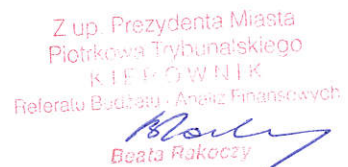 Z up. Prezydenta Miasta
Piotrkowa Trybunalskiego
KIEROWNIK
Referatu Budżetu i Analiz Finansowych
Beata Rakoczy